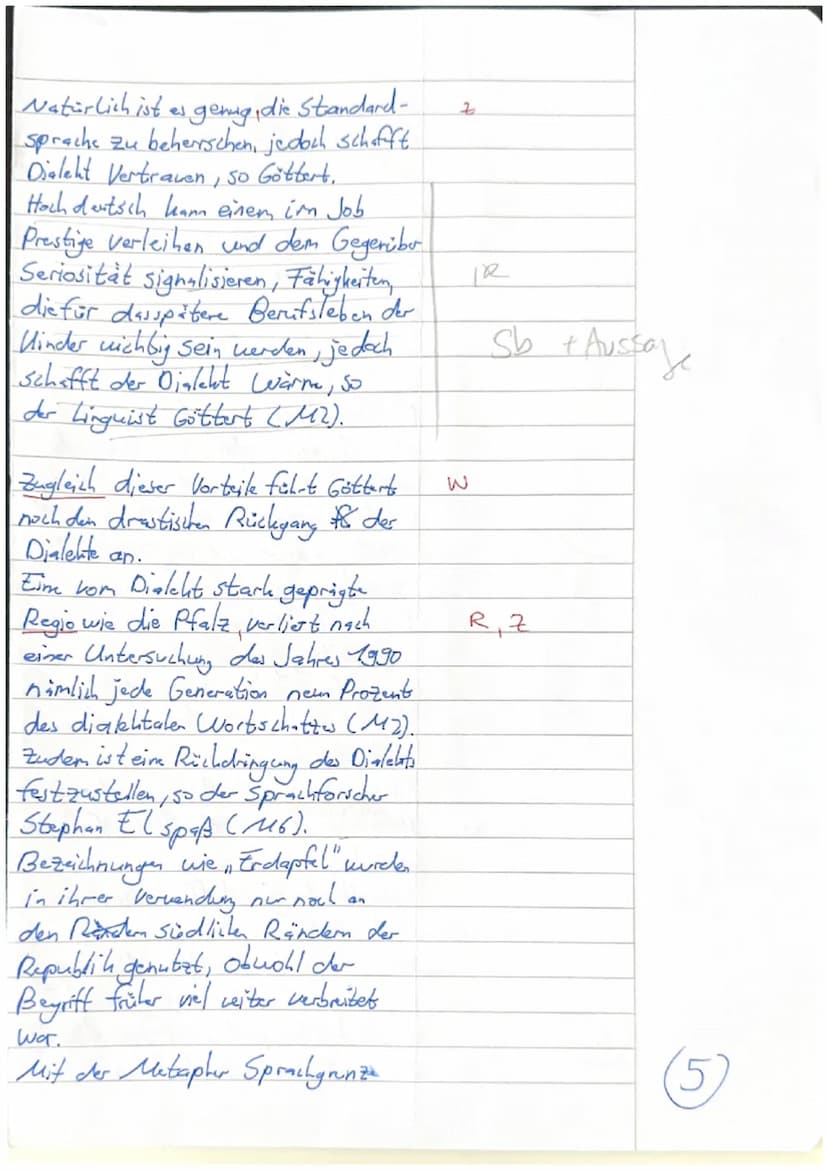 Natürlich ist es genug, die Standard- z
sprache zu beherrschen, jedoch schafft
Dialekt Vertrauen, so Göttert.
Hochdeutsch kann einem im Job
Prestige verleihen und dem Gegenüber
Seriosität signalisieren, Fähigkeiten, R
die für das spätere Berufsleben der
Kinder wichtig sein werden, jedoch Sb + Aussage
schafft der Dialekt Wärme, so
der Linguist Göttert (M2).
Zugleich dieser Vorteile führt Göttert W
noch den drastischen Rückgang der
Dialekte an.
Eine vom Dialekt stark geprägte
Regio wie die Pfalz, verliert nach R, Z
einer Untersuchung des Jahres 1990
nämlich jede Generation neun Prozent
des dialektalen Wortschatzes (M2).
Zudem ist eine Rückdringung des Dialekts
festzustellen, so der Sprachforscher
Stephan Elspaß (M6).
Bezeichnungen wie „Erdapfel" wurden
in ihrer Verwendung nur noch an
den Rändern südlichen Rändern der
Republik genutzt, obwohl der
Begriff früher viel weiter verbreitet
war.
Mit der Metapher Sprachgrenze
5